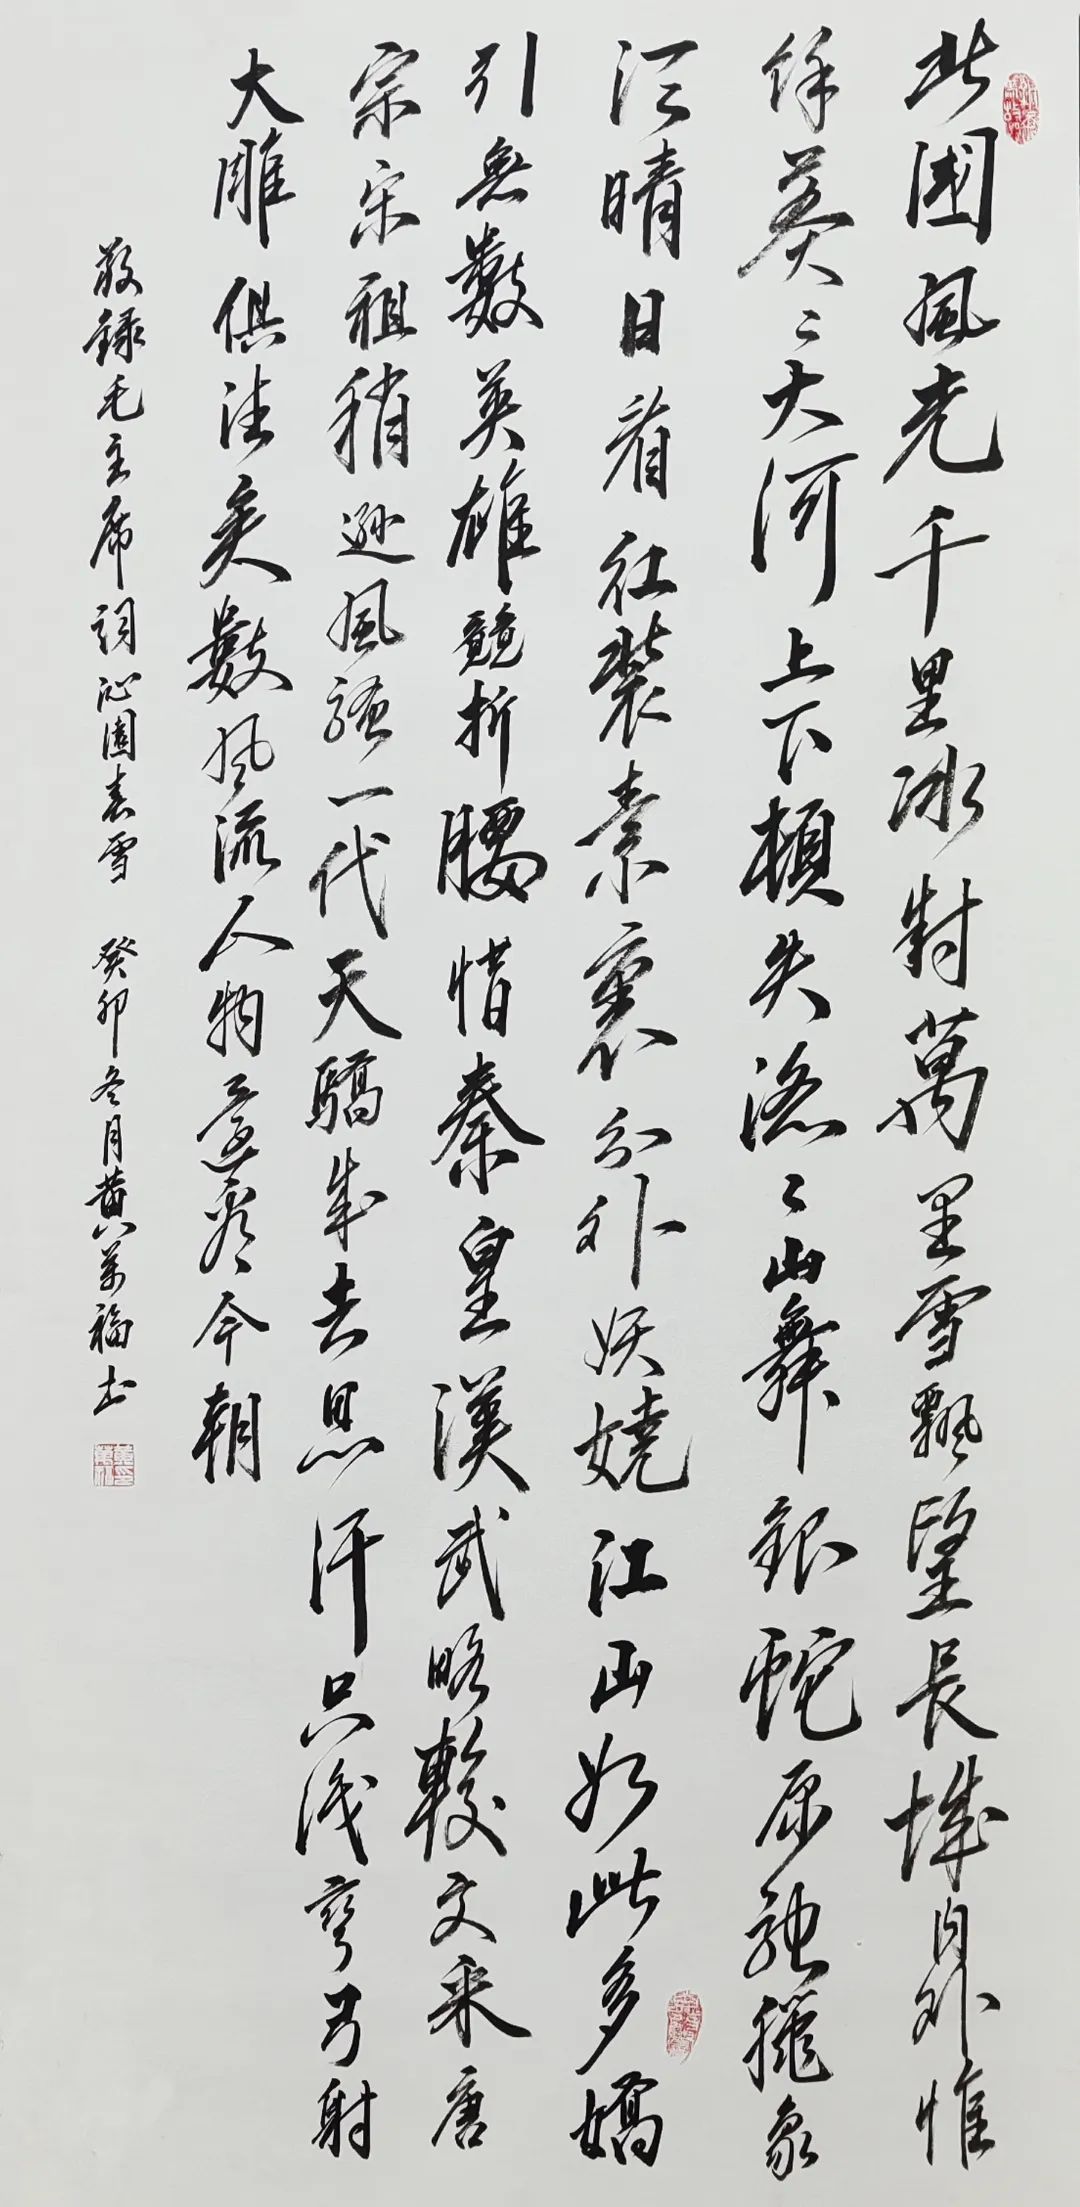 北國風光千里冰封萬里雪飄望長城內外惟
餘莽〻大河上下頓失滔〻山舞銀蛇原馳臘象
須晴日看紅裝素裹分外妖嬈江山如此多嬌
引無數英雄競折腰惜秦皇漢武略輸文采唐
宗宋祖稍遜風騷一代天驕成吉思汗只識彎弓射
大雕俱往矣數風流人物還看今朝
敬錄毛主席詞沁園春雪 癸卯冬月黃萬福書